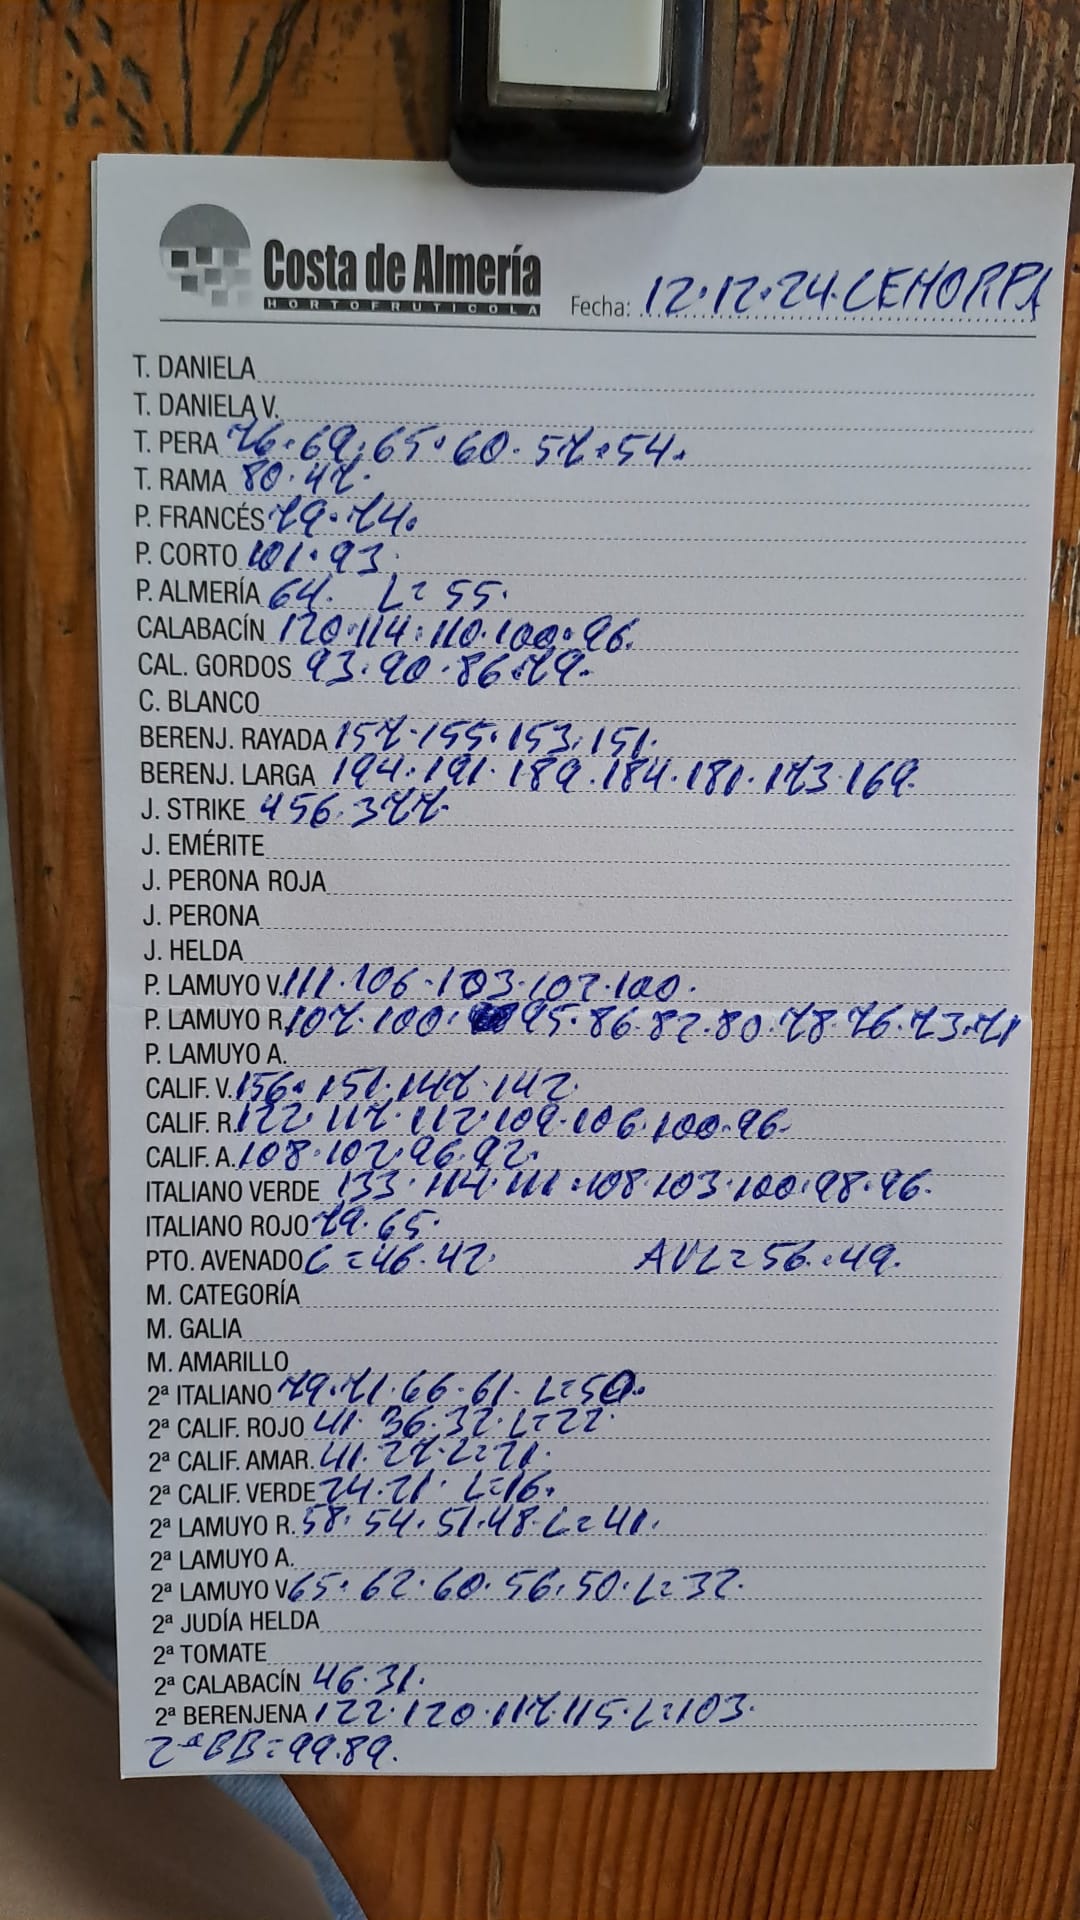 Costa de Almería
HORTOFRUTICOLA
Fecha: 12.12.24. CEHORPA
T. DANIELA
T. DANIELA V.
T. PERA 76.69.65.60.57.54.
T. RAMA 80.47.
P. FRANCÉS 79.74.
P. CORTO 101.93.
P. ALMERÍA 64. L=55.
CALABACÍN 120.114.110.100.96.
CAL. GORDOS 93.90.86.79.
C. BLANCO
BERENJ. RAYADA 157.155.153.151.
BERENJ. LARGA 194.191.189.184.181.173.169.
J. STRIKE 456.377.
J. EMÉRITE
J. PERONA ROJA
J. PERONA
J. HELDA
P. LAMUYO V. 111.106.103.102.100.
P. LAMUYO R. 107.100. 95.86.82.80.78.76.73.71
P. LAMUYO A.
CALIF. V. 156.151.147.142.
CALIF. R. 122.117.112.109.106.100.96.
CALIF. A. 108.102.96.92.
ITALIANO VERDE 133.114.111.108.103.100.98.96.
ITALIANO ROJO 79.65.
PTO. AVENADO C=46.42. AVL=56.49.
M. CATEGORÍA
M. GALIA
M. AMARILLO
2ª ITALIANO 79.71.66.61. L=50.
2ª CALIF. ROJO 41.36.32. L=22.
2ª CALIF. AMAR. 41.27. L=21.
2ª CALIF. VERDE 24.21. L=16.
2ª LAMUYO R. 58.54.51.48. L=41.
2ª LAMUYO A.
2ª LAMUYO V. 65.62.60.56.50. L=32.
2ª JUDÍA HELDA
2ª TOMATE
2ª CALABACÍN 46.31.
2ª BERENJENA 122.120.117.115. L=103.
2ª BB=99.89.